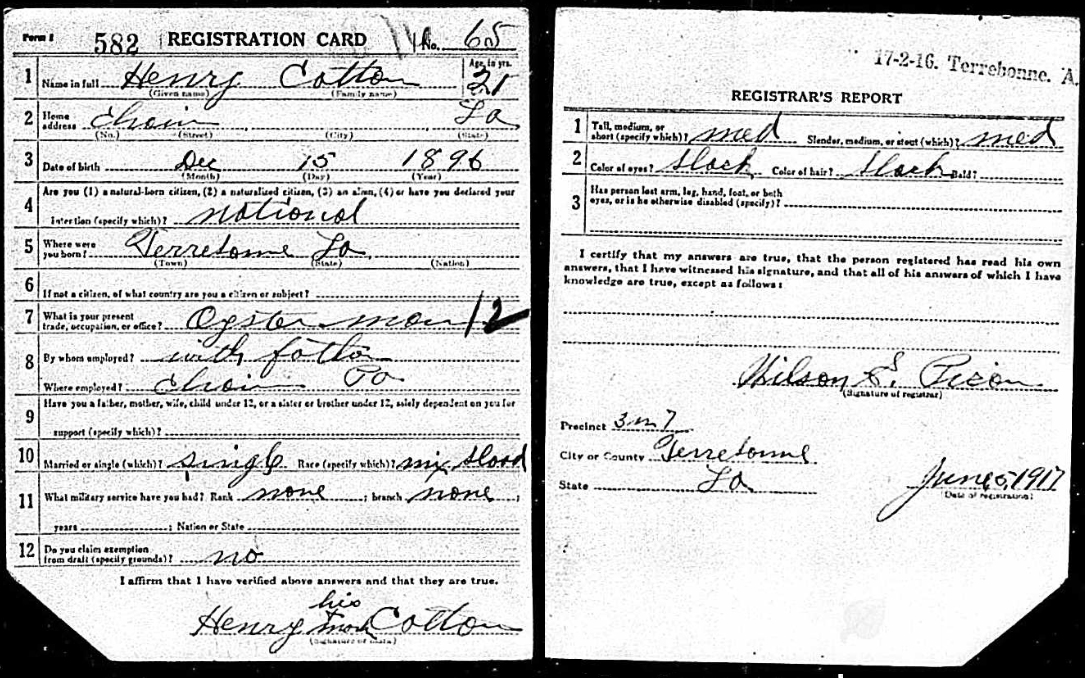 Form 1 582 REGISTRATION CARD No. 65
1 Name in full Henry Cotton Age, in yrs. 21
(Given name) (Family name)
2 Home address Chauvin La
(No.) (Street) (City) (State)
3 Date of birth Dec 15 1896
(Month) (Day) (Year)
4 Are you (1) a natural-born citizen, (2) a naturalized citizen, (3) an alien, (4) or have you declared your
intention (specify which)? national
5 Where were you born? Terrebonne La
(Town) (State) (Nation)
6 If not a citizen, of what country are you a citizen or subject?
7 What is your present trade, occupation, or office? Oyster man 12
8 By whom employed? with
Where employed? La
9 Have you a father, mother, wife, child under 12, or a sister or brother under 12, solely dependent on you for
support (specify which)?
10 Married or single (which)? single Race (specify which)? mix blood
11 What military service have you had? Rank none ; branch none ;
years ; Nation or State
12 Do you claim exemption from draft (specify grounds)? no
I affirm that I have verified above answers and that they are true.
his
Henry mark Cotton
(Signature or mark)
17-2-16. Terrebonne. A
REGISTRAR'S REPORT
1 Tall, medium, or short (specify which)? med Slender, medium, or stout (which)? med
2 Color of eyes? black Color of hair? black Bald?
3 Has person lost arm, leg, hand, foot, or both
eyes, or is he otherwise disabled (specify)?
I certify that my answers are true, that the person registered has read his own
answers, that I have witnessed his signature, and that all of his answers of which I have
knowledge are true, except as follows:
Wilson
(Signature of registrar)
Precinct 3 m 7
City or County Terrebonne
State La
June 5, 1917
(Date of registration)